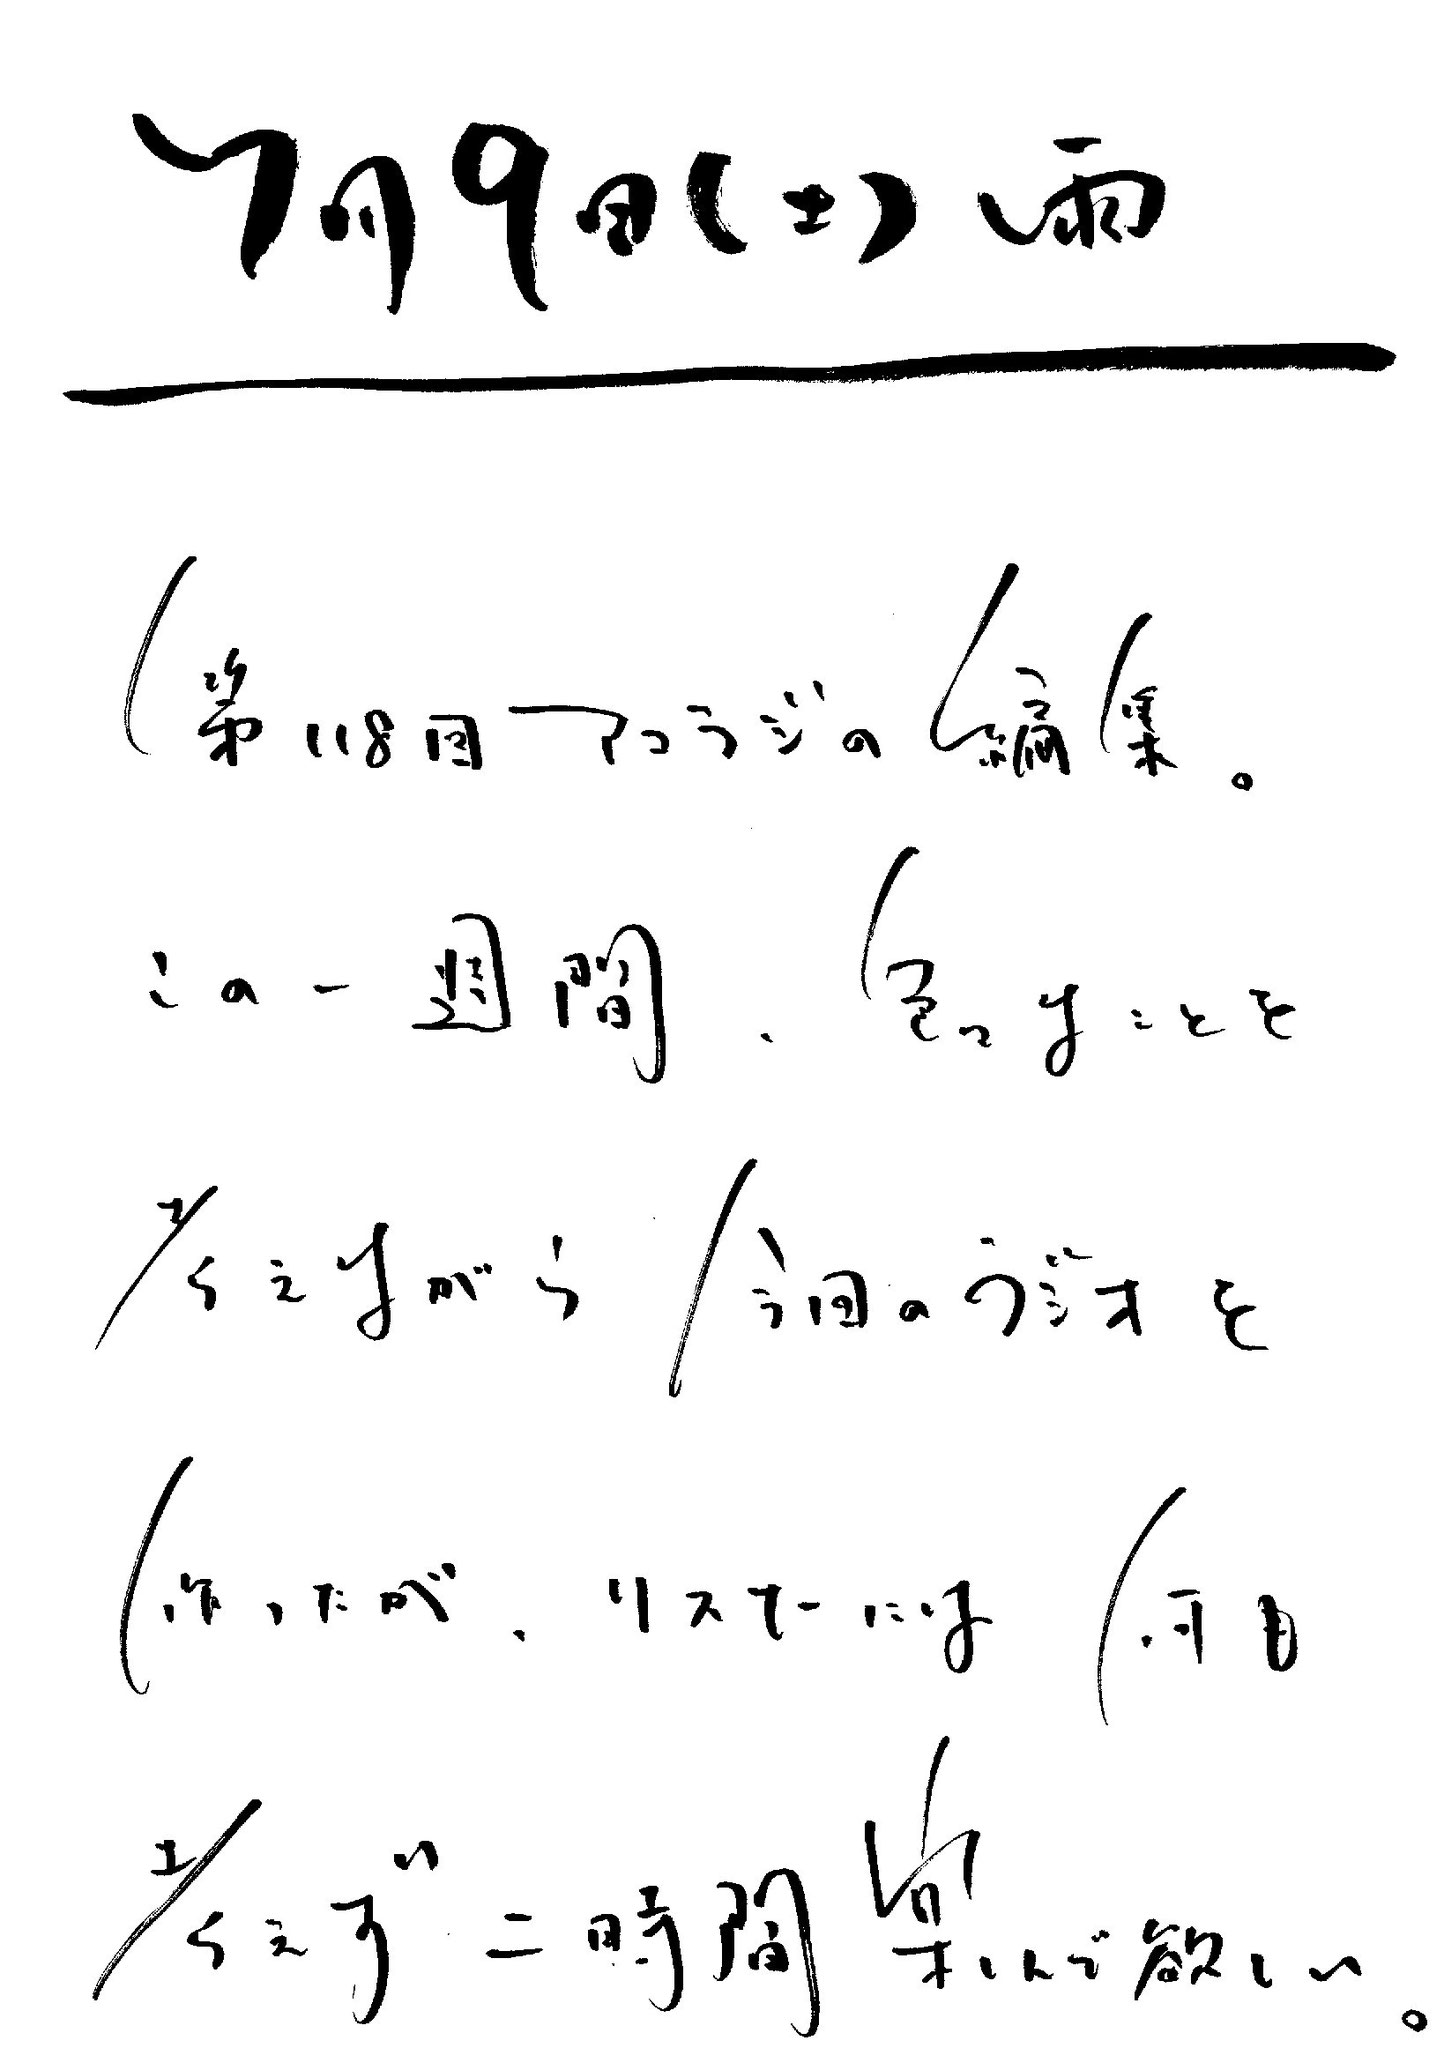 7月9日(土)雨
第118回アコラジの編集。
この一週間、色々なことを
考えながら今回のラジオを
作ったが、リスナーには何も
考えず二時間楽しんで欲しい。